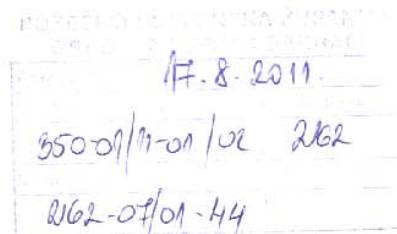 17.8.2011.
350-01/11-01/02 2162
2162-07/01-44